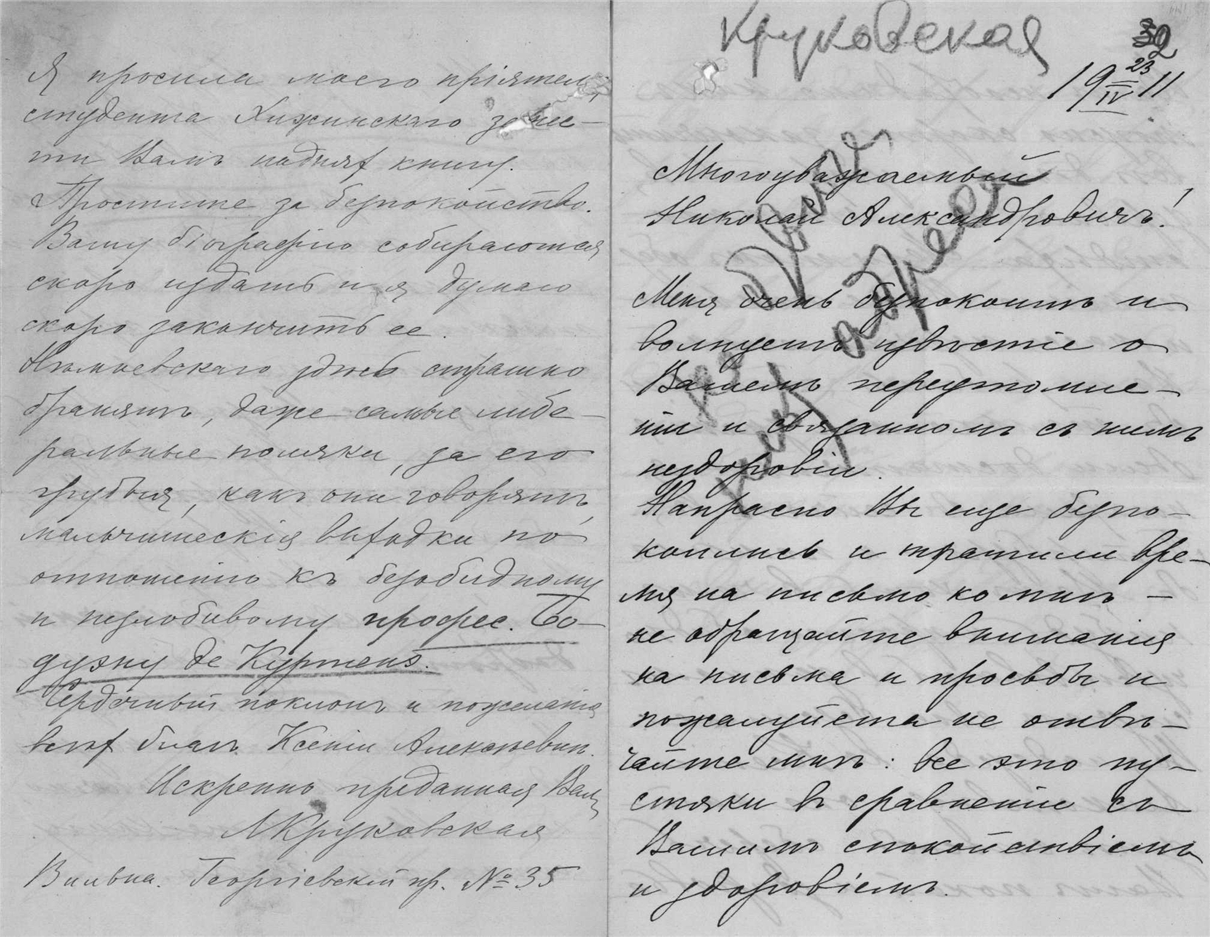 Я просила моего пріятеля,
студента Хижинскаго занес-
ти Вамъ надняхъ книгу.
Простите за безпокойство.
Вашу біографію собираются
скоро издать и я думаю
скоро закончить ее.
Нѣмоевскаго здѣсь страшно
бранятъ, даже самые либе-
ральные поляки, за его
грубыя, какъ они говорятъ,
мальчишескія выходки по
отношенію къ безобидному
и незлобивому профес. Бо-
дуэну де Куртенэ.
Сердечный поклонъ и пожеланія
всѣхъ благъ Ксеніи Алексѣевнѣ.
Искренно преданная Вамъ
Л Круковская
Вильна. Георгіевскій пр. № 35
Круковская
32
19 23/IV 11
Многоуважаемый
Николай Александровичъ!
Меня очень безпокоитъ и
волнуетъ извѣстіе о
Вашемъ переутомле-
ніи и связанномъ съ нимъ
нездоровіи.
Напрасно Вы еще безпо-
коились и тратили вре-
мя на письмо ко мнѣ –
не обращайте вниманія
на письма и просьбы и
пожалуйста не отвѣ-
чайте мнѣ: все это пу-
стяки въ сравненіе съ
Вашимъ спокойствіемъ
и здоровіемъ.